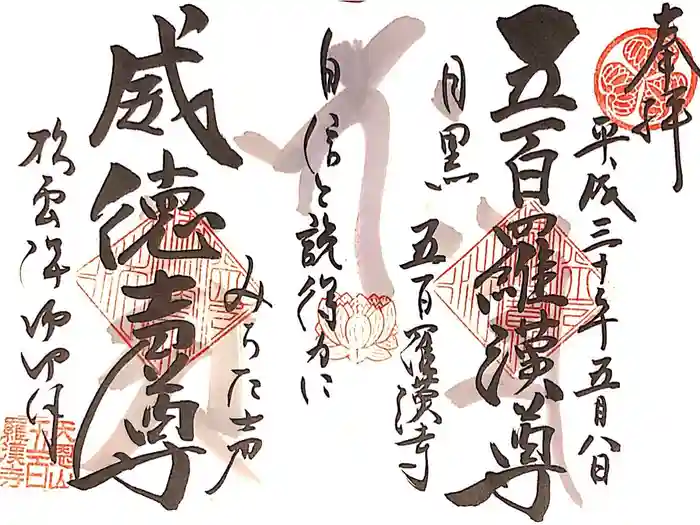 奉拝
平成三十年五月八日
五百羅漢尊
目黒 五百羅漢寺
自信と説得力に
みちた声
威徳声尊
松雲作
天恩山
五百
羅漢寺